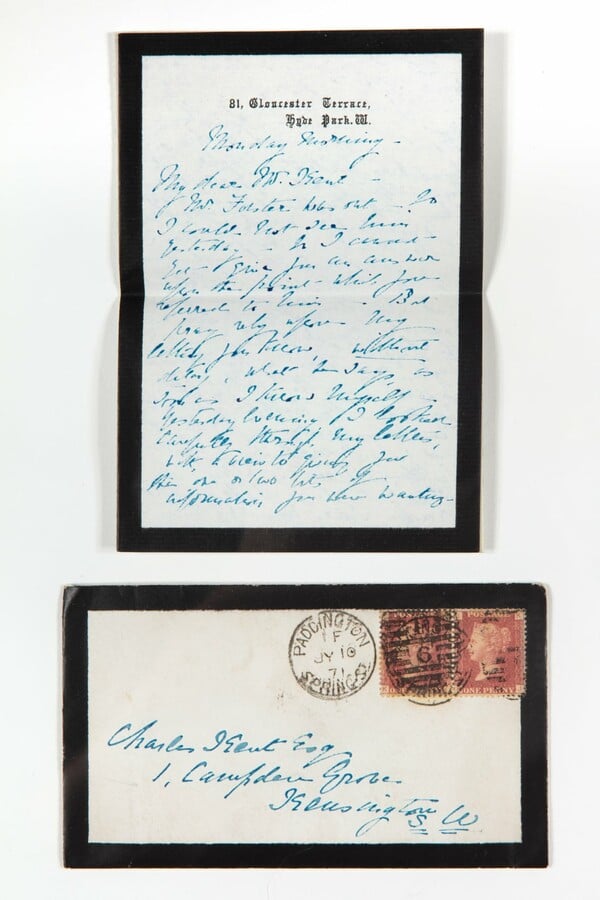 81, Gloucester Terrace,
Hyde Park. W.
Monday Morning -
My dear Mr. Kent -
Mr. Forster was out - So
I could not see him
Yesterday - So I cannot
yet give you an answer
upon the point which you
referred to him - But
pray rely upon my
letting you know, without
delay, what he says, as
soon as I know myself -
Yesterday Evening I looked
carefully through my letters,
with a view to giving you
the one or two bits of
information you were wanting -
PADDINGTON
1 F
JY 10
71
SPRING ST
6
ONE PENNY
Charles Kent Esq
1, Campden Grove
Kensington
S W